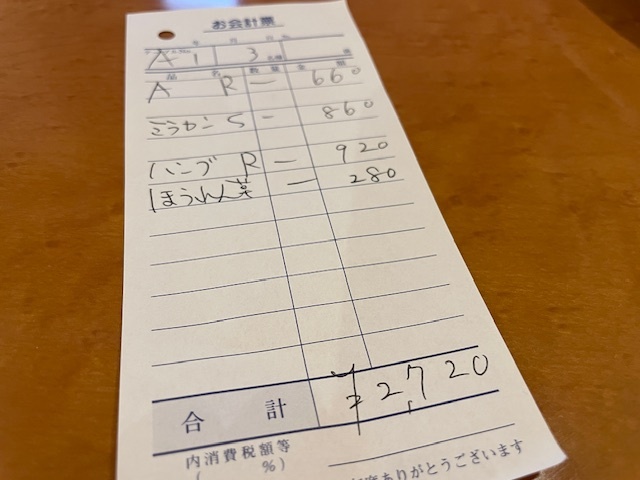 お会計票
年 月 日 No.
A1 3 名様 係
品 名 数 量 金 額
A R 一 660
ミラカン S - 860
ハンブ R 一 920
ほうれん菜 一 280
合 計 ¥2,720
内消費税額等
( %)
ありがとうございます